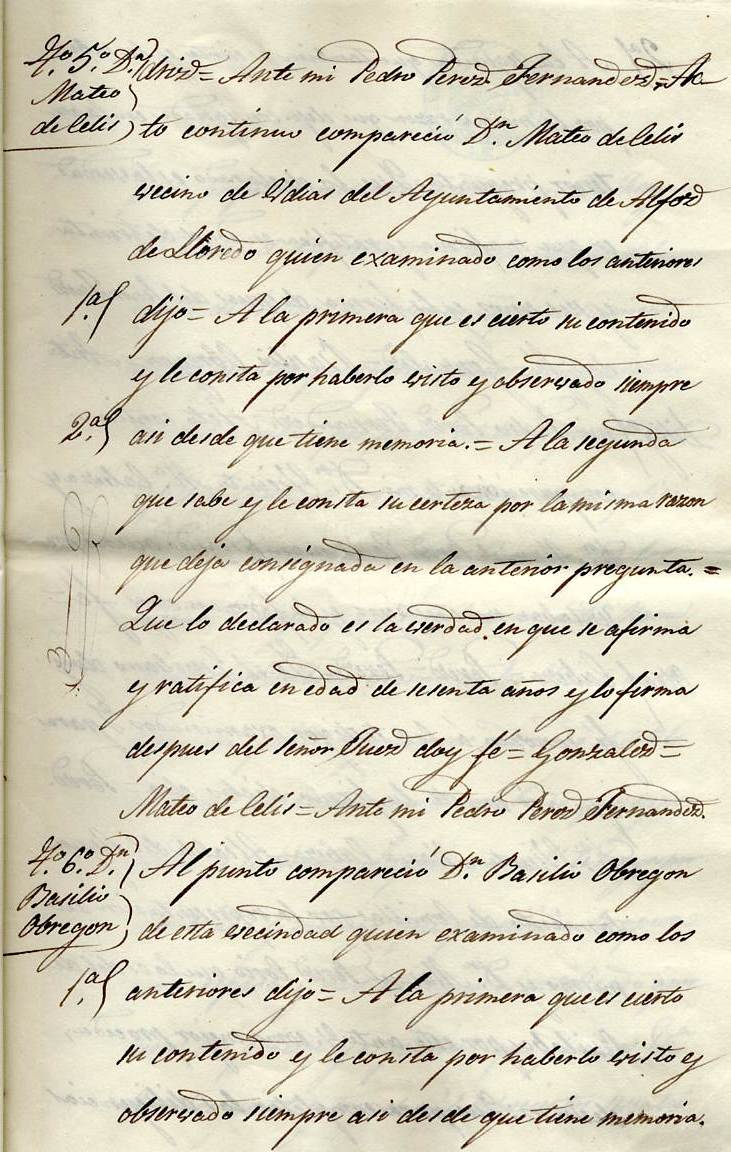 To. 5.º D.n
Mateo
de Celis
driz = Ante mi Pedro Perez Fernandez = Ac
to continuo compareció D.n Mateo de Celis
vecino de Udias del Ayuntamiento de Alfoz
de Lloredo quien examinado como los anteriores
1.a dijo = A la primera que es cierto su contenido
y le consta por haberlo visto y observado siempre
2.a asi desde que tiene memoria. = A la segunda
que sabe y le consta su certeza por la misma razon
que deja consignada en la anterior pregunta. =
Que lo declarado es la verdad, en que se afirma
y ratifica en edad de sesenta años y lo firma
despues del señor Juez doy fé = Gonzalez =
Mateo de Celis = Ante mi Pedro Perez Fernandez.
To. 6.º D.n
Basilio
Obregon
Al punto compareció D.n Basilio Obregon
de esta vecindad quien examinado como los
1.a anteriores dijo = A la primera que es cierto
su contenido y le consta por haberlo visto y
observado siempre asi desde que tiene memoria.